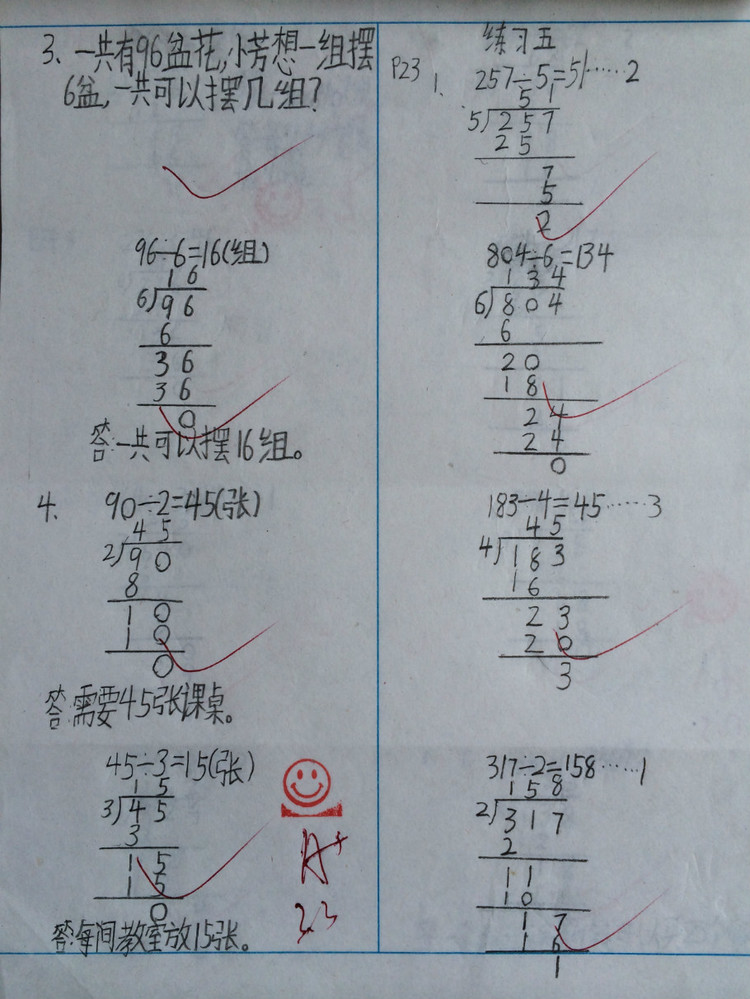 3、一共有96盆花,小芳想一组摆
6盆,一共可以摆几组?
96÷6=16(组)
1 6
6)9 6
6
3 6
3 6
0
答:一共可以摆16组。
4、 90÷2=45(张)
4 5
2)9 0
8
1 0
1 0
0
答:需要45张课桌。
45÷3=15(张)
1 5
3)4 5
3
1 5
1 5
0
答:每间教室放15张。
A+
3.3
练习五
P23 1、 257÷5=51……2
5 1
5)2 5 7
2 5
7
5
2
804÷6=134
1 3 4
6)8 0 4
6
2 0
1 8
2 4
2 4
0
183÷4=45……3
4 5
4)1 8 3
1 6
2 3
2 0
3
317÷2=158……1
1 5 8
2)3 1 7
2
1 1
1 0
1 7
1 6
1